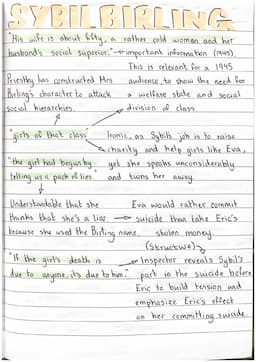 SYBIL BIRLING
"His wife is about fifty, a rather cold woman and her
husband's social superior." → important information (1945)
This is relevant for a 1945
Priestley has constructed Mrs audience, to show the need for
Birling's character to attack a welfare state and social
social hierarchies. division of class.
"girls of that class" Ironic, as Sybil's job is to raise
charity and help girls like Eva,
"the girl had begun by yet she speaks unconsiderably
telling us a pack of lies." and turns her away.
Understandable that she Eva would rather commit
thinks that she's a liar → suicide than take Eric's
because she used the Birling name. stolen money.
(Structure)
"If the girl's death is Inspector reveals Sybil's
due to anyone, its due to him." part in the suicide before
Eric to build tension and
emphasize Eric's effect
on her committing suicide.